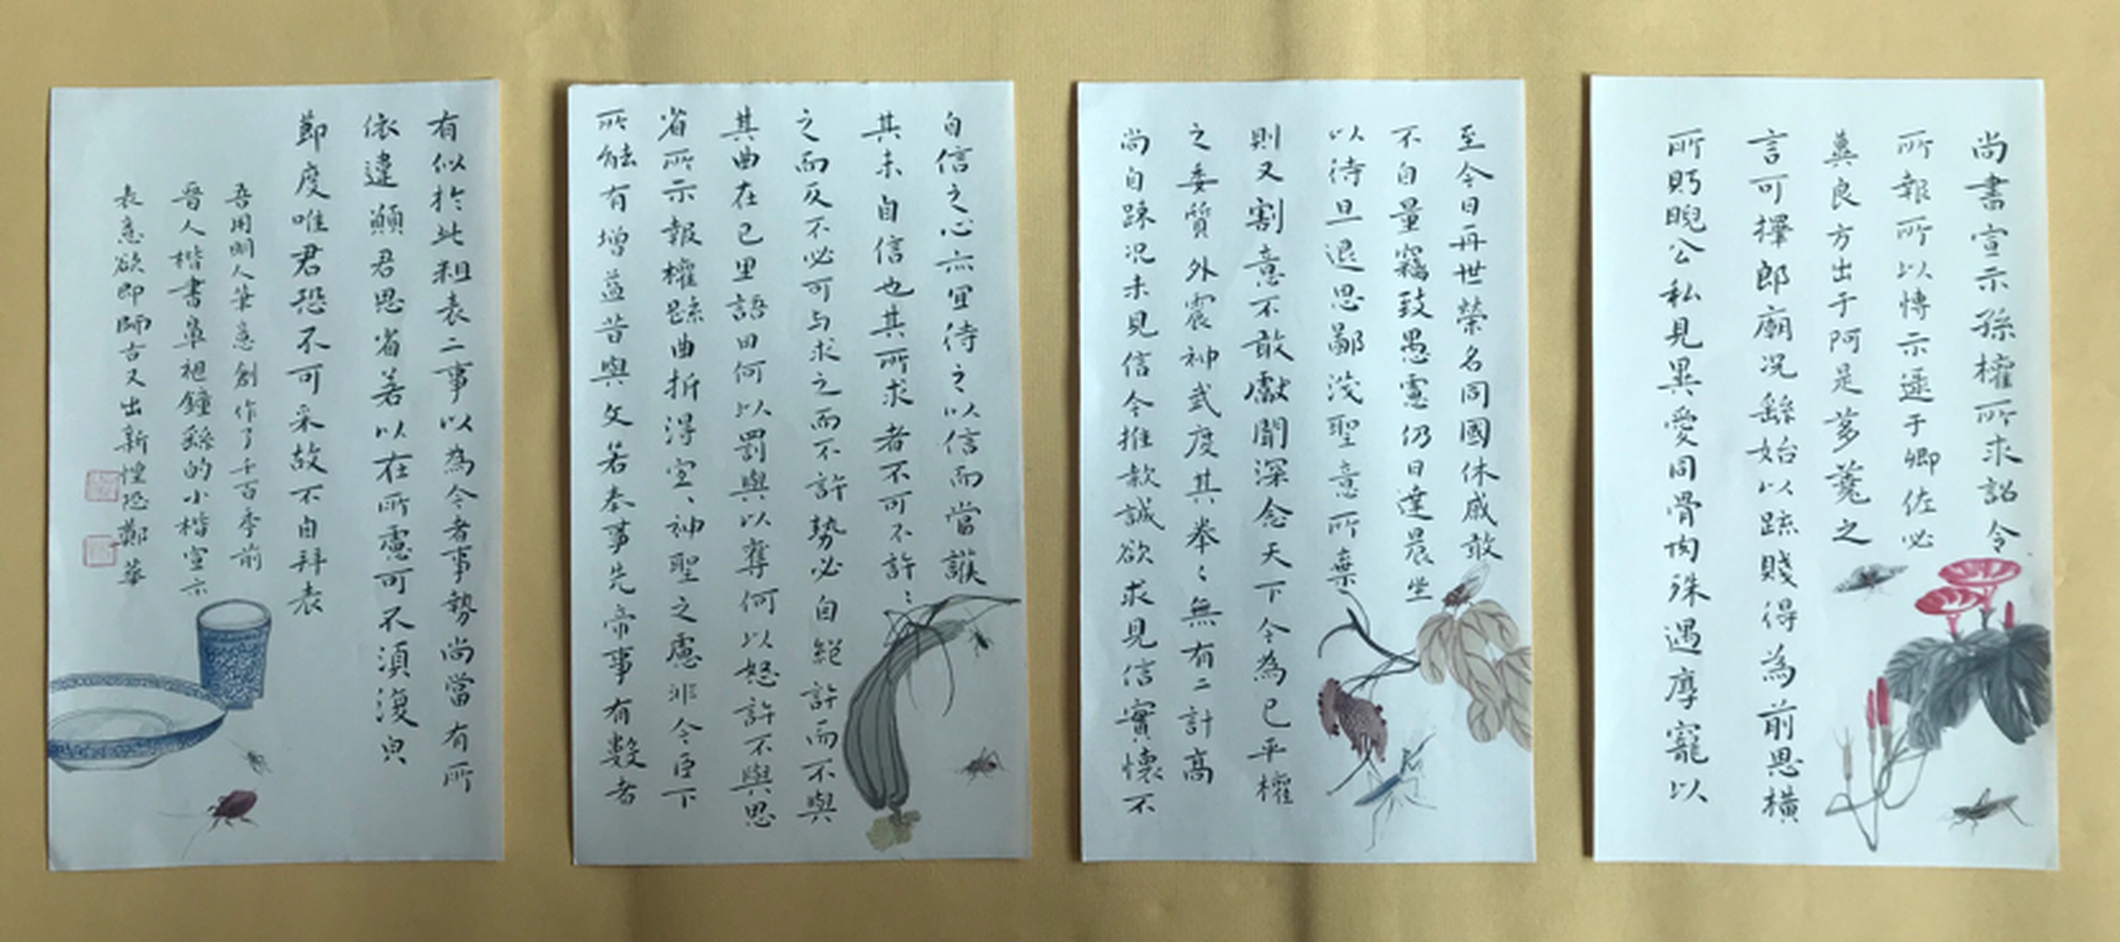 尚書宣示孫權所求詔令
所報所以博示逮于卿佐必
冀良方出于阿是芻蕘之
言可擇郎廟況繇始以疏賤得為前恩橫
所眄睨公私見異愛同骨肉殊遇厚寵以
至今日再世榮名同國休慼敢
不自量竊致愚慮仍日達晨坐
以待旦退思鄙淺聖意所棄
則又割意不敢獻聞深念天下今為已平權
之委質外震神武度其拳〻無有二計高
尚自疎況未見信今推款誠欲求見信實懷不
自信之心亦宜待之以信而當護
其未自信也其所求者不可不許〻
之而反不必可与求之而不許勢必自絕許而不與
其曲在己里語曰何以罰與以奪何以怒許不與思
省所示報權疏曲折得宜〻神聖之慮非今臣下
所能有增益昔與文若奉事先帝事有數者
有似於此粗表二事以為今者事勢尚當有所
依違願君思省若以在所慮可不須復與
節度唯君恐不可采故不自拜表
吾用明人筆意創作了千百季前
晉人楷書鼻祖鐘繇的小楷宣示
表意欲即師古又出新惶恐鄭華